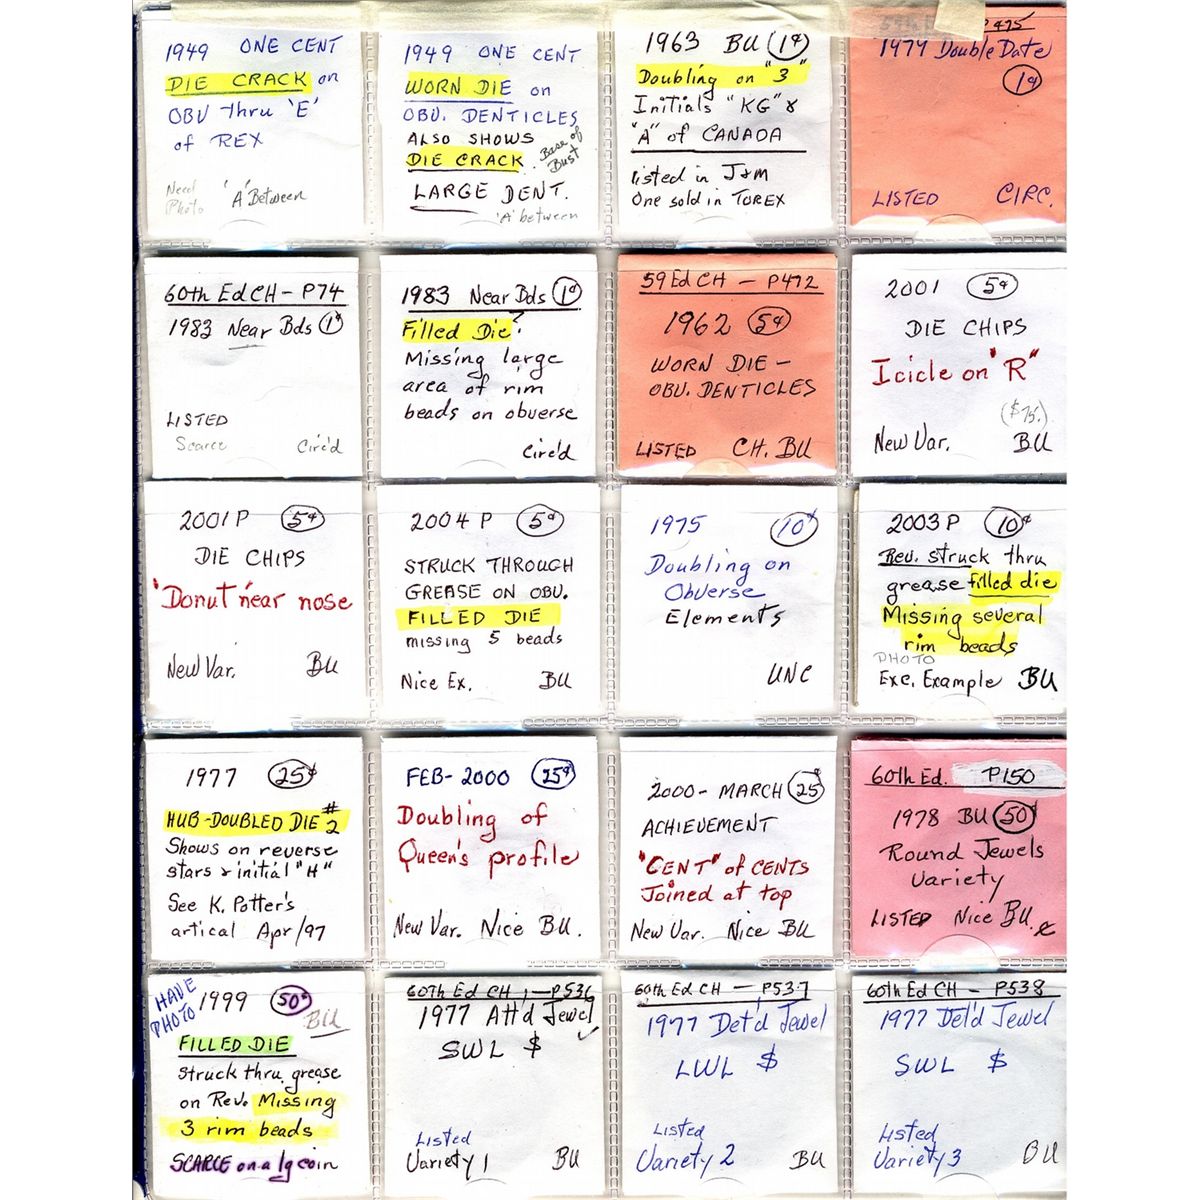 1949 ONE CENT
DIE CRACK on
OBV thru 'E'
of REX
Need
Photo
'A' Between
1949 ONE CENT
WORN DIE on
OBV. DENTICLES
ALSO SHOWS
DIE CRACK.
Base of
Bust
LARGE DENT.
'A' between
1963 BU 1¢
Doubling on "3"
Initials "KG" &
"A" of CANADA
Listed in J&M
One sold in TOREX
P475
1979 Double Date
1¢
LISTED CIRC.
60th Ed CH - P74
1983 Near Bds 1¢
LISTED
Scarce Circ'd
1983 Near Bds 1¢
Filled Die?
Missing large
area of rim
beads on obverse
Circ'd
59 Ed CH - P472
1962 5¢
WORN DIE -
OBV. DENTICLES
LISTED CH. BU
2001 5¢
DIE CHIPS
Icicle on "R"
($75.)
New Var. BU
2001 P 5¢
DIE CHIPS
"Donut" near nose
New Var. BU
2004 P 5¢
STRUCK THROUGH
GREASE ON OBV.
FILLED DIE
missing 5 beads
Nice Ex. BU
1975 10¢
Doubling on
Obverse
Elements
UNC
2003 P 10¢
Rev. struck thru
grease filled die
Missing several
rim beads
PHOTO
Exc. Example BU
1977 25¢
HUB-DOUBLED DIE #2
Shows on reverse
stars & initial "H"
See K. Potter's
artical Apr/97
FEB-2000 25¢
Doubling of
Queen's profile
New Var. Nice BU.
2000-MARCH 25¢
ACHIEVEMENT
"CENT" of CENTS
Joined at top
New Var. Nice BU
60th Ed. P150
1978 BU 50¢
Round Jewels
Variety
LISTED Nice BU
HAVE
PHOTO
1999 50¢
BU
FILLED DIE
Struck thru grease
on Rev. Missing
3 rim beads
SCARCE on a lg coin
60TH Ed CH, - P536
1977 Att'd Jewel
SWL $
Listed
Variety 1 BU
60th Ed CH - P537
1977 Det'd Jewel
LWL $
Listed
Variety 2 BU
60th Ed CH - P538
1977 Det'd Jewel
SWL $
Listed
Variety 3 BU